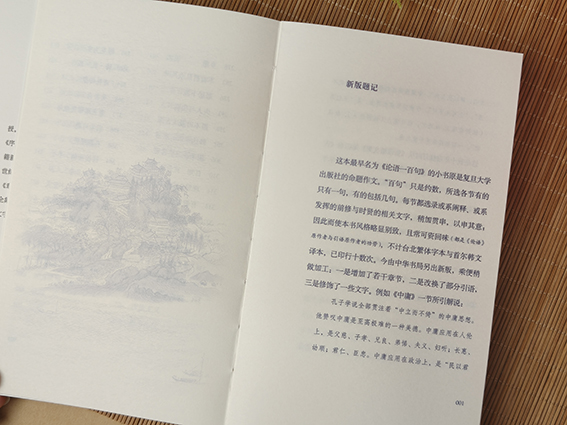 授，
《序
新版题记
这本最早名为《论语一百句》的小书原是复旦大学
出版社的命题作文。“百句”只是约数，所选各节有的
只有一句，有的包括几句，每节都选录或系阐释，或系
发挥的前修与时贤的相关文字，稍加贯串，以申其意；
因此而使本书风格略显别致，且常可资回味（都是《论语》
原作者与引语原作者的功劳）。不计台北繁体字本与首尔韩文
译本，已印行十数次。今由中华书局另出新版，乘便稍
做加工：一是增加了若干章节，二是改换了部分引语，
三是修饰了一些文字，例如《中庸》一节所引解说：
孔子学说全部贯注着“中立而不倚”的中庸思想。
他赞叹中庸是至高极难的一种美德。中庸应用在人伦
上，是父慈、子孝，兄良、弟悌，夫义、妇听；长惠、
幼顺；君仁、臣忠。中庸应用在政治上，是“民以君
001